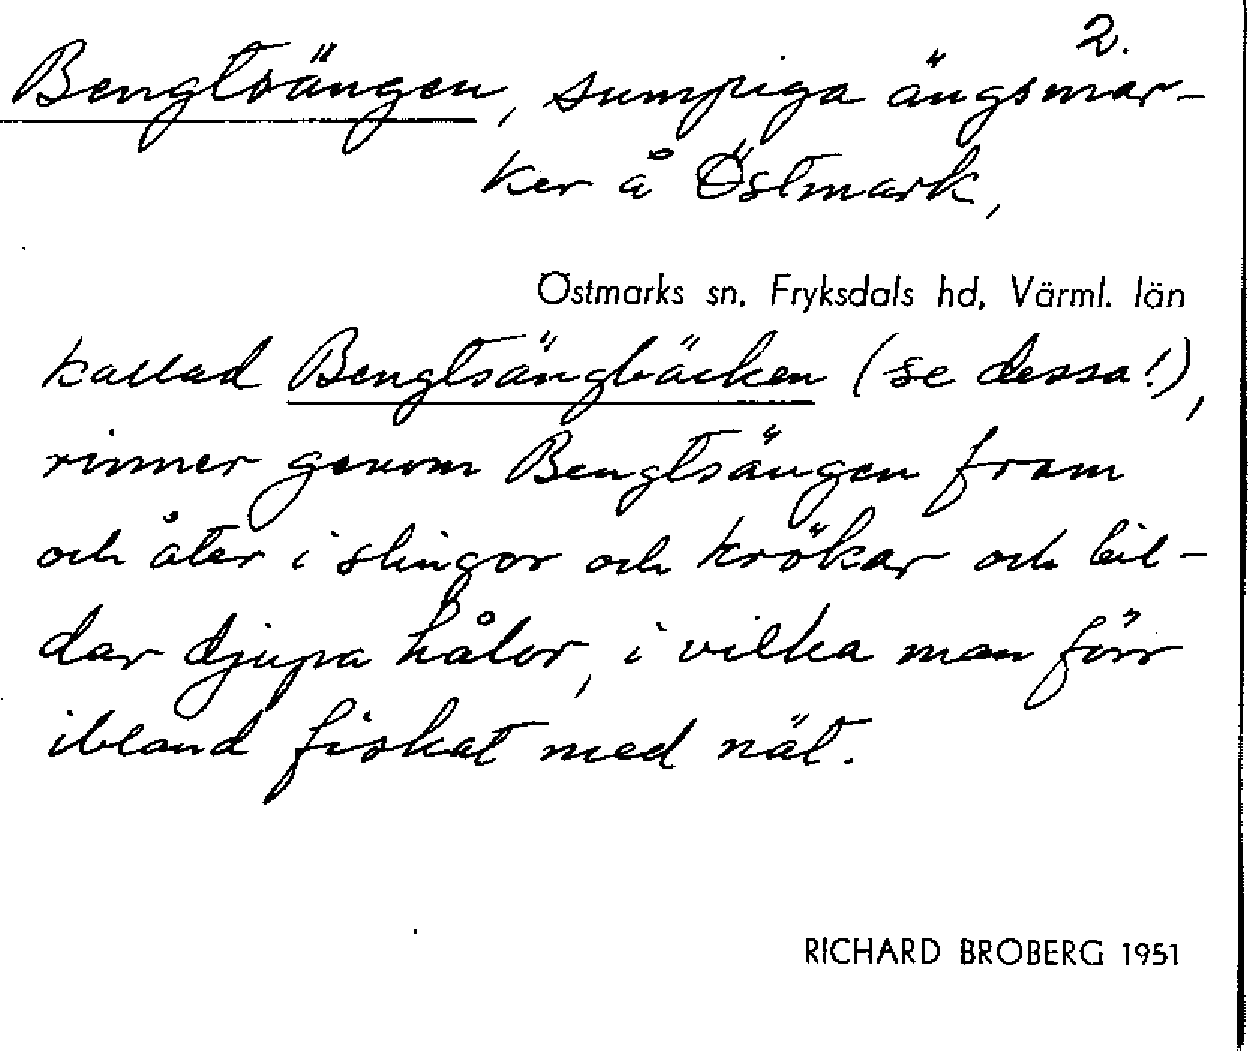 2.
Bengtsängen, sumpiga ängsmar-
ker å Östmark,
Östmarks sn. Fryksdals hd, Värml. län
kallad Bengtsängbäcken (se dessa!),
rinner genom Bengtsängen fram
och åter i slingor och krökar och bil-
dar djupa hålor, i vilka man förr
ibland fiskat med nät.
RICHARD BROBERG 1951